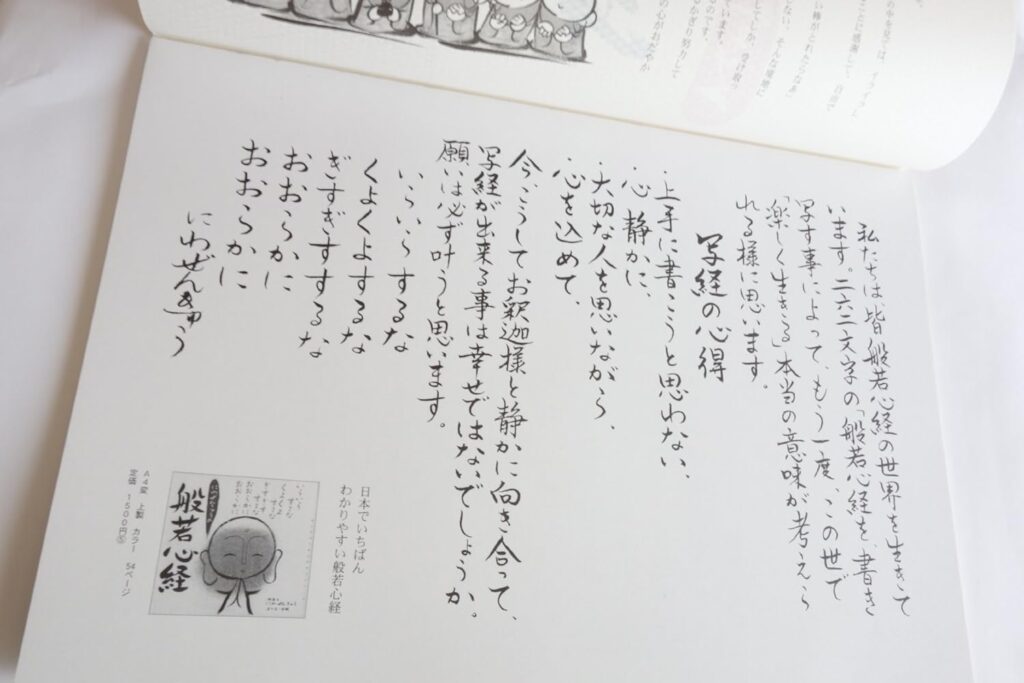 私たちは、皆般若心経の世界を生きて
います。二六二文字の「般若心経を、書き
写す事によって、もう一度、この世で
「楽しく生きる」本当の意味が考えら
れる様に思います。
写経の心得
・上手に書こうと思わない、
・心静かに、
・大切な人を思いながら、
・心を込めて、
今こうしてお釈迦様と静かに向き合って、
写経が出来る事は幸せではないでしょうか。
願いは必ず叶うと思います。
いらいらするな
くよくよするな
ぎすぎすするな
おおらかに
おおらかに
にわぜんきゅう
日本でいちばん
わかりやすい般若心経
般若心経
A4変 上製 カラー 54ページ
定価 1500円⑤